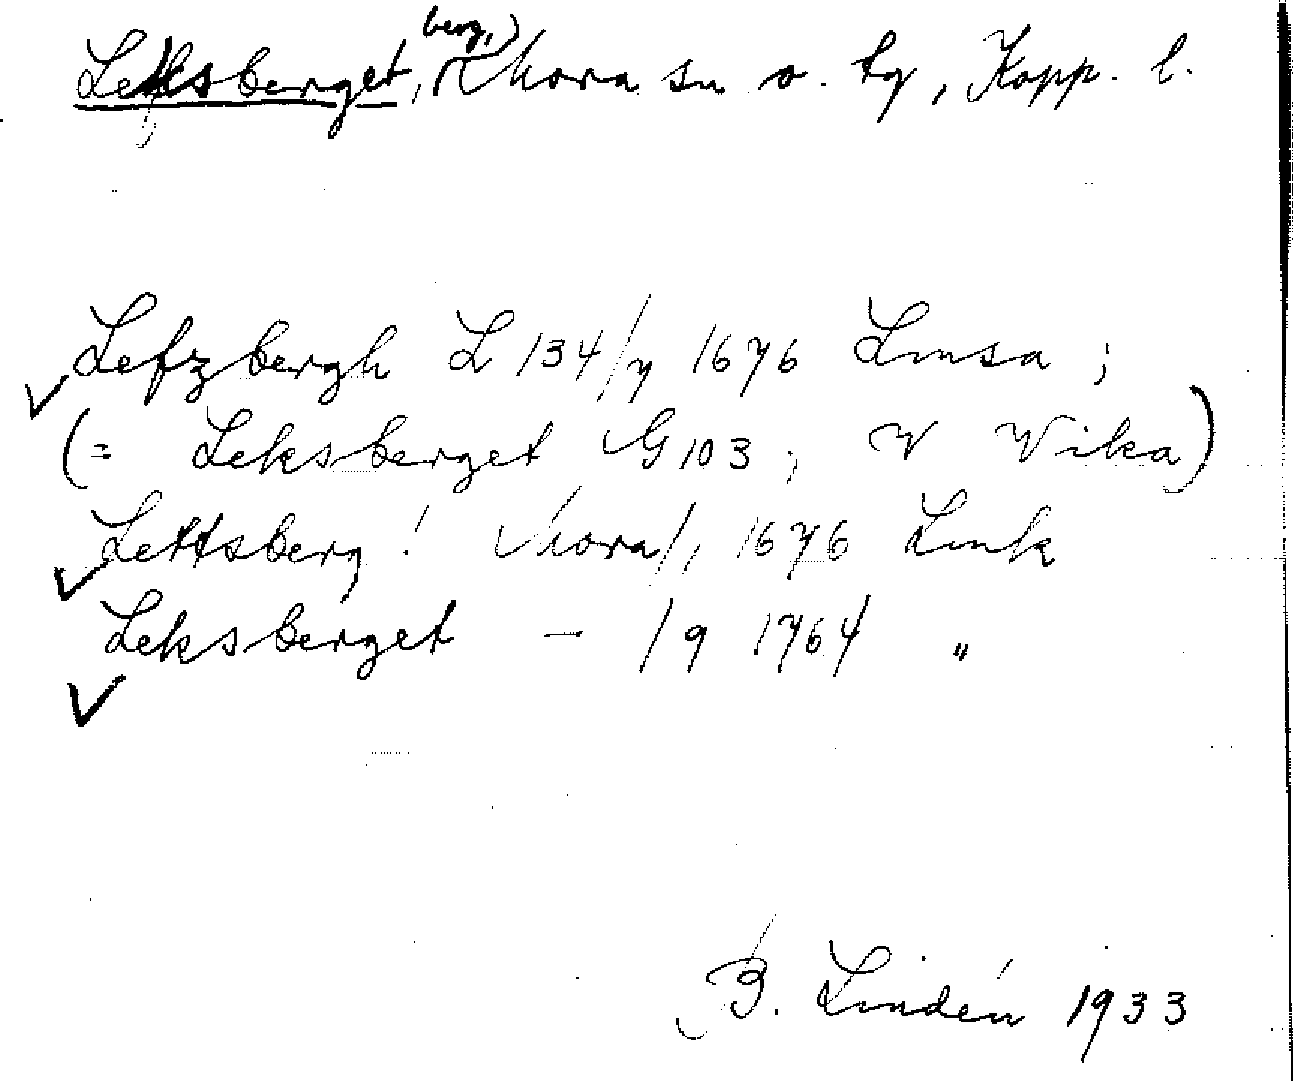 Leksberget, berg, Mora sn o. tg, Kopp. l.
Lefzbergh L 134/7 1676 Lmsa ;
(= Leksberget G 103, V Vika)
Lettsberg! Mora/1 1676 Lmk
Leksberget – /9 1764 "
B. Lindén 1933